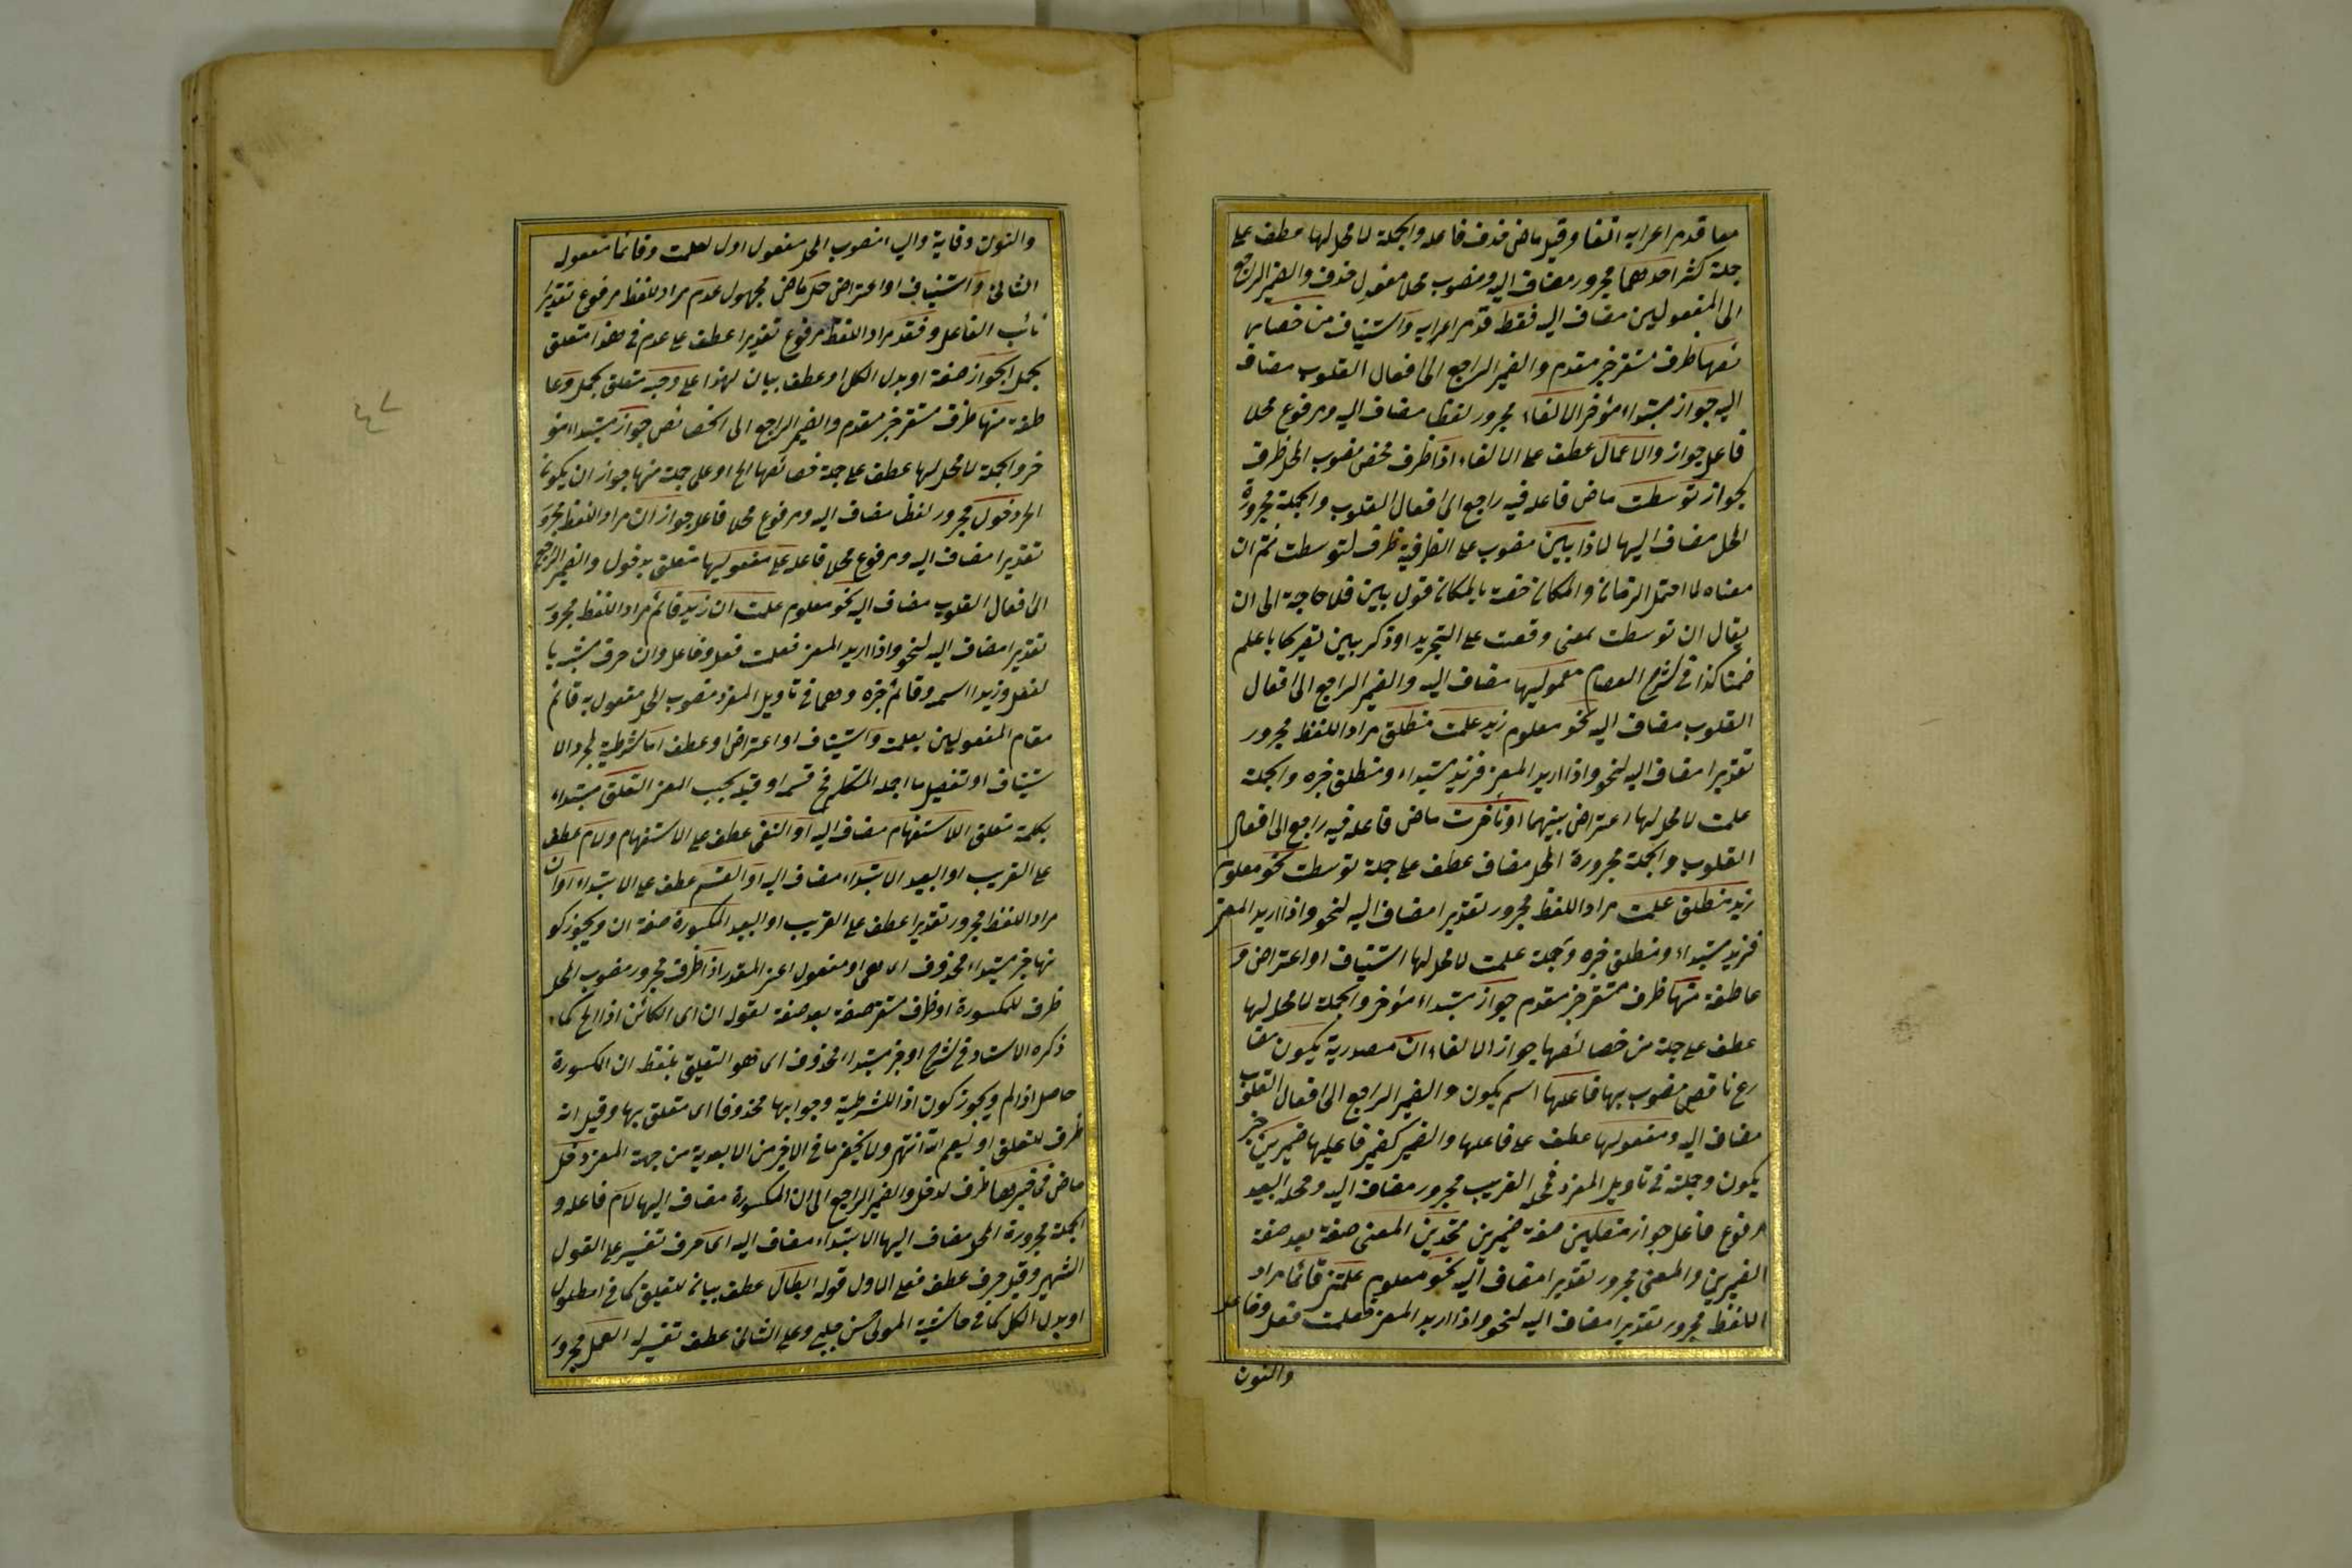 معا قد مر اعرابه آنفا وقيل ماض فذف فاعله والجملة لا محل لها عطف على
جملة كثر احدهما مجرور مضاف اليه ومنصوب محلا مفعول حذف والضمير الراجع
الى المفعولين مضاف اليه فقط قد مر اعرابه واستيناف من خصايـ
ئصها ظرف مستقر خبر مقدم والضمير الراجع الى افعال القلوب مضاف
اليه جواز مبتداء مؤخر الالغاء مجرور لفظا مضاف اليه ومرفوع محلا
فاعل جواز والاعمال عطف على الالغاء اذا ظرف محض منصوب المحل ظرف
لجواز توسطت ماض فاعله فيه راجع الى افعال القلوب والجملة مجرورة
المحل مضاف اليها لاذا بين منصوب على الظرفية ظرف لتوسطت ثم ان
معناه لما احتمل الزمانى والمكانى خصه بالمكانى قوله بين فلا حاجة الى ان
يقال ان توسطت بمعنى وقعت على التجريد او ذكر بين تصريحا بما علم
ضمنا كذا فى شرح العصام معموليها مضاف اليه والضمير الراجع الى افعال
القلوب مضاف اليه نحو معلوم زيد علمت منطلق مراد اللفظ مجرور
تقديرا مضاف اليه لنحو واذا اريد المعنى فزيد مبتداء ومنطلق خبره والجملة
علمت لا محل لها اعتراض بينهما او تأخرت ماض فاعله فيه راجع الى افعال
القلوب والجملة مجرورة المحل مضاف عطف على جملة توسطت نحو معلوم
زيد منطلق علمت مراد اللفظ مجرور تقديرا مضاف اليه لنحو واذا اريد المعنى
فزيد مبتداء ومنطلق خبره وجملة علمت لا محل لها استيناف او اعتراض و
عاطفة منها ظرف مستقر خبر مقدم جواز مبتداء مؤخر والجملة لا محل لها
عطف على جملة من خصائصها جواز الالغاء ان مصدرية يكون مضا
رع ناقص منصوب بها فاعلها اسم يكون والضمير الراجع الى افعال القلوب
مضاف اليه ومفعولها عطف على فاعلها والضمير كضمير فاعليها ضميرين خبر
يكون وجملة فى تاويل المفرد فمحله القريب مجرور مضاف اليه ومحله البعيد
مرفوع فاعل جواز متصلين صفة ضميرين متحدين المعنى صفة بعد صفة
الضميرين والمعنى مجرور تقديرا مضاف اليه نحو معلوم علمتنى قائما مراد
اللفظ مجرور تقديرا مضاف اليه لنحو واذا اريد المعنى فعلمت فعل وفاعل
والنون
والنون وقاية والياء منصوب المحل مفعول اول لعلمت وقائما مفعوله
الثانى واستيناف او اعتراض حكى ماض مجهول عدم مراد اللفظ مرفوع تقديرا
نائب الفاعل وفقد مراد اللفظ مرفوع تقديرا عطف على عدم فى هذا متعلق
بحمل الجواز صفة او بدل الكل او عطف بيان لهذا على وجه متعلق بحمل وعا
طفة منها ظرف مستقر خبر مقدم والضمير الراجع الى الخصائص جواز مبتداء مؤ
خر والجملة لا محل لها عطف على جملة خصائصها الخ او على جملة منها جواز ان يكون
الخ دخول مجرور لفظا مضاف اليه ومرفوع محلا فاعل جواز ان مراد اللفظ مجرور
تقديرا مضاف اليه ومرفوع محلا فاعله على مفعوليها متعلق بدخول والضمير الراجع
الى افعال القلوب مضاف اليه نحو معلوم علمت ان زيدا قائم مراد اللفظ مجرور
تقديرا مضاف اليه لنحو واذا اريد المعنى فعلمت فعل وفاعل وان حرف مشبه با
لفعل وزيدا اسمه وقائم خبره وهما فى تاويل المفرد منصوب المحل مفعول به قائم
مقام المفعولين بعلمت واستيناف او اعتراض او عطف اما شرطية لمجرد الا
ستيناف او تفصيل ما اجمله المتكلم فى قسم او قيد بحسب المعنى التعلق مبتداء
بكلمة متعلق الاستفهام مضاف اليه او النفى عطف على الاستفهام ولام عطف
على القريب او البعيد الابتداء مضاف اليه او القسم عطف على الابتداء او ان
مراد اللفظ مجرور تقديرا عطف على القريب او البعيد المكسورة صفة ان ويجوز كو
نها خبر مبتداء محذوف اى هى او مفعول اعنى المقدر اذا ظرف مجرور منصوب المحل
ظرف للمكسورة او ظرف مستقر صفة بعد صفة لقوله ان اى الكائن اذا الخ كما
ذكره الاستاد فى شرح او خبر مبتداء محذوف اى هو التعليق بلفظ ان المكسورة
حاصل اذا لم ويجوز كون اذا للشرطية وجوابها محذوفا اى متعلق بها وقيل انه
ظرف للتعلق او ليعم انه انتهى ولا يخفى ما فى الاخيرين الا بعدية من جهة المعنى دخل
ماض فى خبرها ظرف لدخل والضمير الراجع الى ان المكسورة مضاف اليها لام فاعله و
الجملة مجرورة المحل مضاف اليها الابتداء مضاف اليه اى حرف تفسير على القول
الشهير وقيل حرف عطف فعلى الاول قوله ابطال عطف بيان للتعليق كما فى المطول
او بدل الكل كما فى حاشية المولى حسن چلبى وعلى الثانى عطف تفسير له العمل مجرور